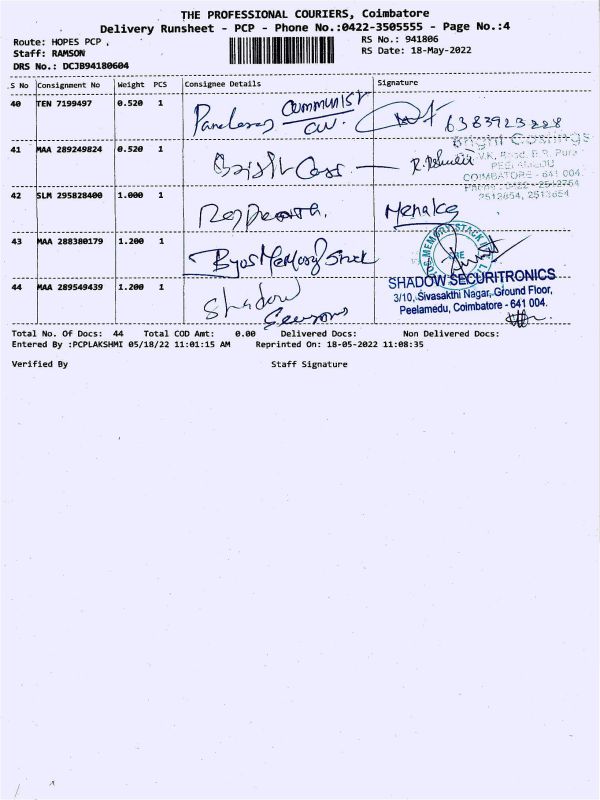 THE PROFESSIONAL COURIERS, Coimbatore
Delivery Runsheet - PCP - Phone No.:0422-3505555 - Page No.:4
Route: HOPES PCP .
RS No.: 941806
Staff: RAMSON
RS Date: 18-May-2022
DRS No.: DCJB94180604
S No Consignment No Weight PCS Consignee Details Signature
40 TEN 7199497 0.520 1
Communist
6383923228
41 MAA 289249824 0.520 1
Bright Castings
PEELAMEDU
COIMBATORE - 641 004.
42 SLM 295828400 1.000 1 Menaka
43 MAA 288380179 1.200 1 Byos Memory Stack
MEMORY STACK
44 MAA 289549439 1.200 1 Shadow
SHADOW SECURITRONICS
3/10, Sivasakthi Nagar, Ground Floor,
Peelamedu, Coimbatore - 641 004.
Total No. Of Docs: 44 Total COD Amt: 0.00 Delivered Docs: Non Delivered Docs:
Entered By :PCPLAKSHMI 05/18/22 11:01:15 AM Reprinted On: 18-05-2022 11:08:35
Verified By Staff Signature